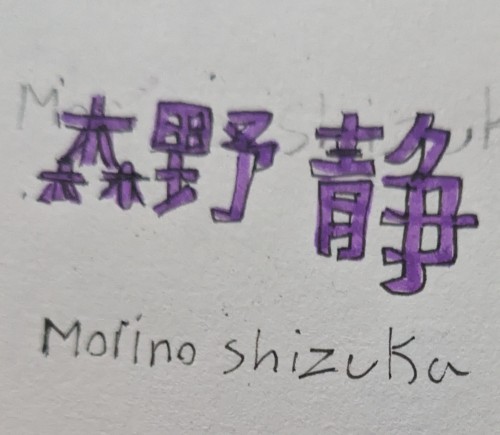 森野 静
Morino shizuka